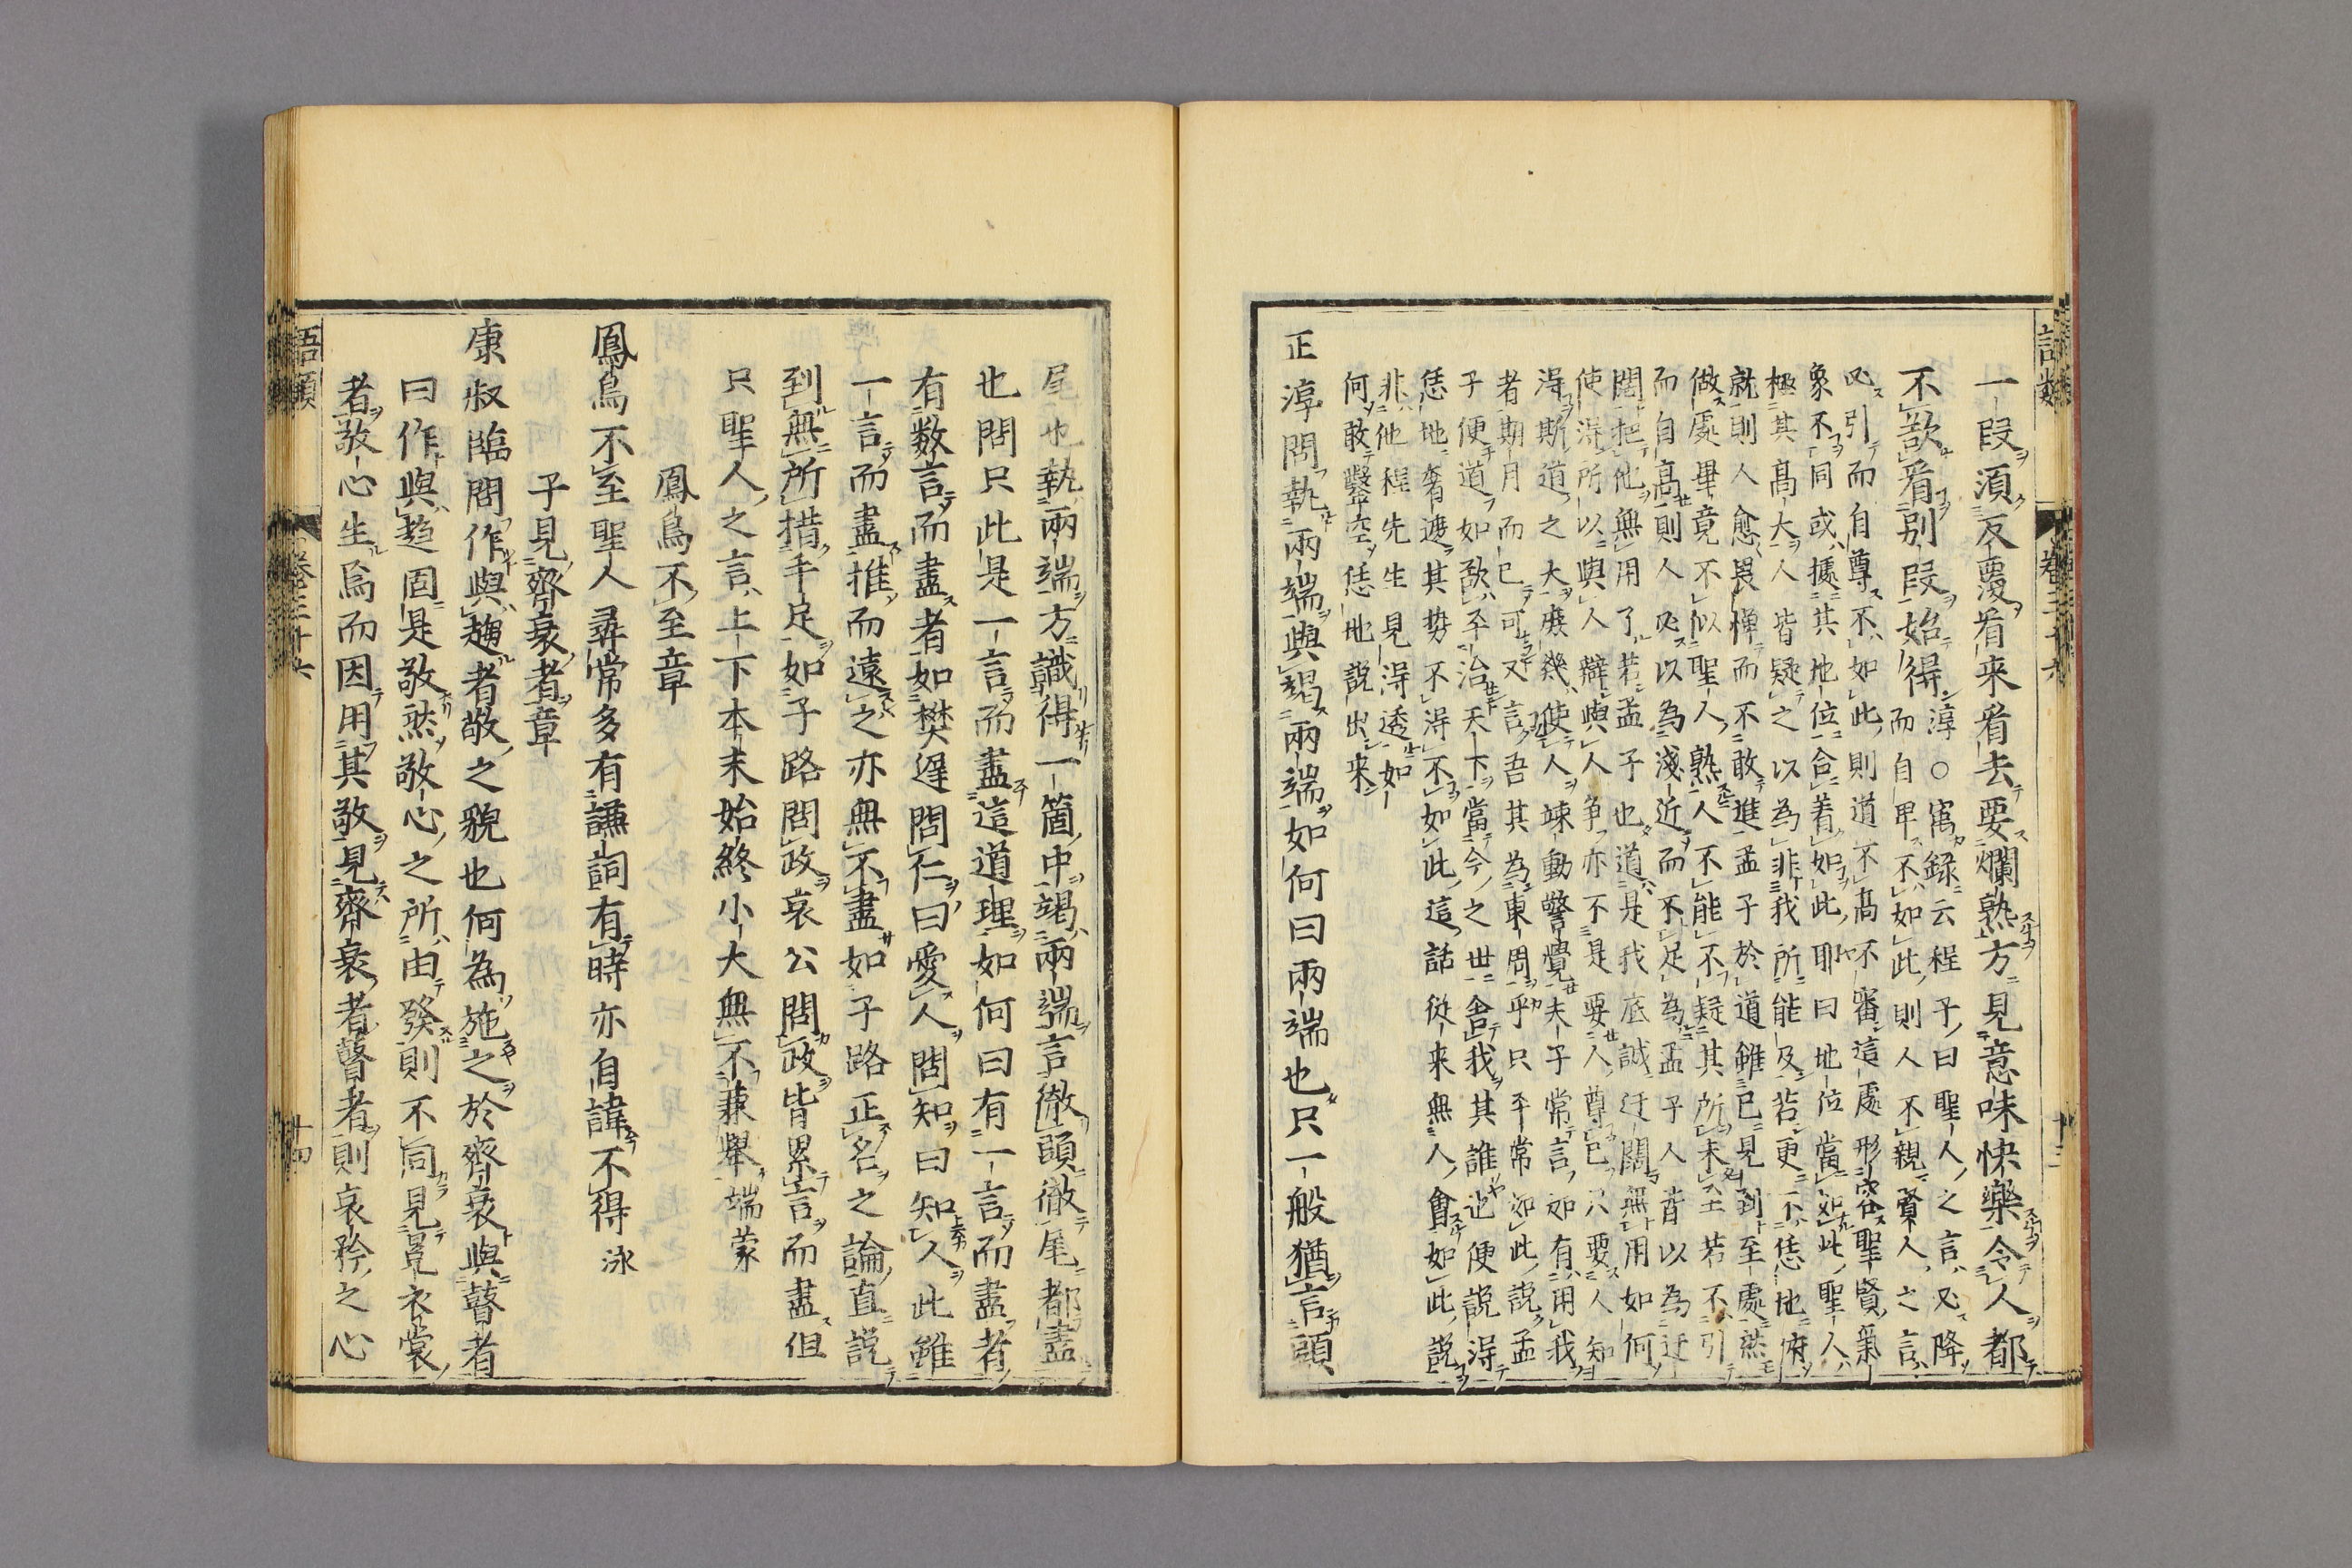 語類
卷三十六
十三
一段須反覆看来看去要爛熟方見意味快樂令人都
不欲看別段始得淳○寓録云程子曰聖人之言必降
而自卑不如此則人不親賢人之言
必引而自尊不如此則道不高不審這處形容聖賢氣
象不同或據其地位合着如此耶曰地位當如此聖人
極其高大人皆疑之以為非我所能及若更不恁地俯
就則人愈畏憚而不敢進孟子於道雖已見到至處然
做處畢竟不似聖人熟人不能不疑其所未至若不引
而自高則人必以為淺近而不足為孟子人皆以為迂
闊把他無用了若孟子也道是我底誠迂闊無用如何
使得所以與人辯與人争亦不是要人尊已只要人知
得斯道之大庶幾使人竦動警覺夫子常言如有用我
者期月而已可又言吾其為東周乎只平常如此說孟
子便道如欲平治天下當今之世舎我其誰也便說得
恁地奢遮其勢不得不如此這話從来無人會如此說
非他程先生見得透如
何敢鑿空恁地說出来
正淳問執兩端與竭兩端如何曰兩端也只一般猶言頭
尾也執兩端方識得一箇中竭兩端言徹頭徹尾都盡
也問只此是一言而盡這道理如何曰有一言而盡者
有数言而盡者如樊遲問仁曰愛人問知曰知人此雖
一言而盡推而遠之亦無不盡如子路正名之論直說
到無所措手足如子路問政哀公問政皆累言而盡但
只聖人之言上下本末始終小大無不兼舉端蒙
鳳鳥不至章
鳳鳥不至聖人尋常多有謙詞有時亦自諱不得泳
子見齊衰者章
康叔臨問作與趨者敬之貌也何為施之於齊衰與瞽者
曰作與趨固是敬然敬心之所由發則不同見冕衣裳
者敬心生焉而因用其敬見齊衰者瞽者則哀矜之心
語類
卷三十六
十四